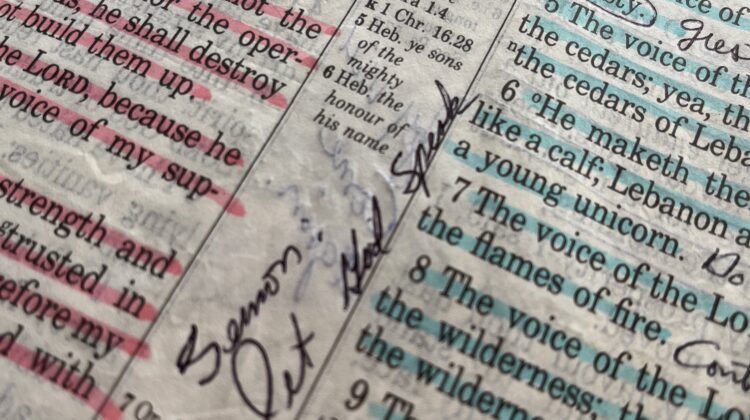 not the
as, he shall destroy
for the oper-
not build them up.
he LORD, because he
voice of my sup-
strength and
trusted in
efore my
d with
1:4
k 1 Chr. 16.28
5 Heb. ye sons
of the
mighty
6 Heb. the
honour of
his name
Sermon:
Let God Speak
7
5 The voice of th
the cedars; yea, th
n the cedars of Leba
6 o He maketh the
like a calf; Lebanon a
a young unicorn.
7 The voice of the Lo
the flames of fire.
8 The voice of the L
the wilderness; the
the wildern
9 Th